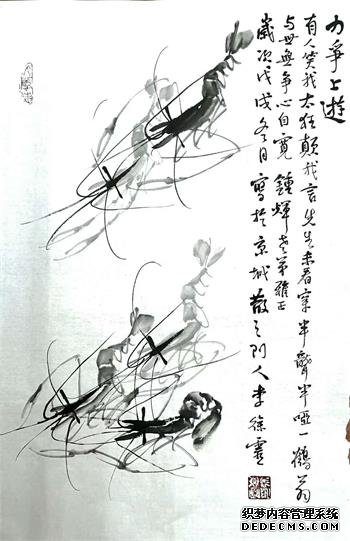 力争上游
有人笑我太狂颠我言先生未看穿半聋半哑一鹤翁
与世無争心自宽 鍾輝老弟雅正
歲次戊戌冬月寫於京城散之門人李徐云
织梦内容管理系统
DEDECMS.COM